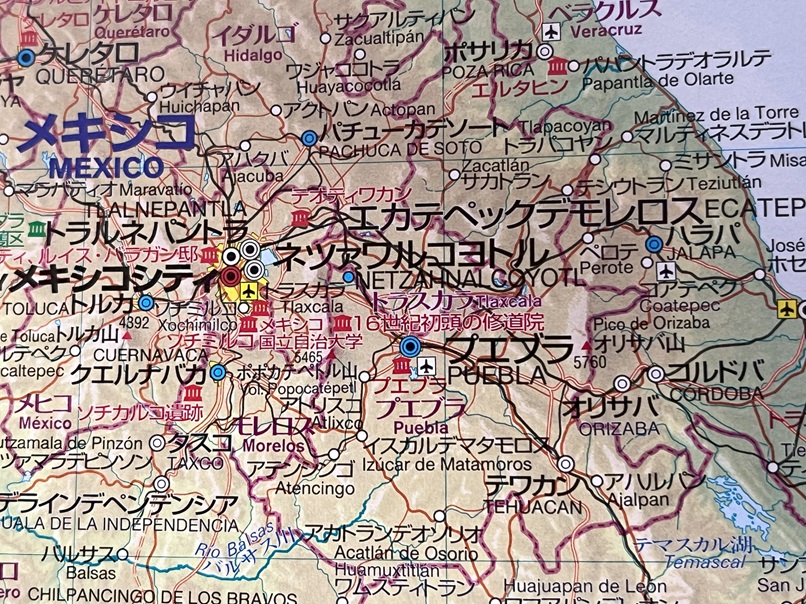 ベラクルス
Veracruz
サクアルティパン
Zacualtipán
イダルゴ
Hidalgo
ケレタロ
Querétaro
ケレタロ
QUERÉTARO
ポサリカ
POZA RICA
エルタヒン
パパントラデオラルテ
Papantla de Olarte
ワジャココトラ
Huayacocotlá
ウイチャパン
Huichapán
アクトパン Actopan
メキシコ
MEXICO
パチューカデソート
PACHUCA DE SOTO
Martínez de la Torre
マルティネスデラト
Tlapacoyan
トラパコヤン
アハクバ
Ajacuba
Zacatlán
サカトラン
ミサントラ Misa
テシウトラン Teziutlán
マラバティオ Maravatio
テオティワカン
TLALNEPANTLA
トラルネパントラ
エカテペックデモレロス ECATEP
ティ、ルイス・バラガン邸
ネツァワルコヨトル
NETZAHNALCOYOTL
ペロテ
Perote
ハラパ
JALAPA
José
ホセ
メキシコシティ
トルカ
TOLUCA
トラスカラ
Tlaxcala
トラスカラ Tlaxcala
コアテペク
Coatepec
ソチミルコ
Xochimilco
メキシコ
国立自治大学
ソチミルコ
16世紀初頭の修道院
4392
トルカ山
de Toluca
CUERNAVACA
クエルナバカ
5465
ポポカテペトル山
Vol. Popocatépetl
プエブラ
PUEBLA
Pico de Orizaba
オリサバ山
5760
ルテペク
caltepec
コルドバ
CÓRDOBA
プエブラ
プエブラ
Puebla
メヒコ
México
ソチカルコ遺跡
アトリスコ
Atlixco
オリサバ
ORIZABA
モレロス
Morelos
utzamala de Pinzón
ツァマラデピンソン
タスコ
TAXCO
イスカルデマタモロス
Izúcar de Matamoros
アテンシンゴ
Atencingo
テワカン
TEHUACAN
アハルパン
Ajalpan
デラインデペンデンシア
UALA DE LA INDEPENDENCIA
Río Balsas
バルサス川
アカトランデオソリオ
Acatlán de Osorio
テマスカル湖
Temascal
バルサス
Balsas
Huamuxtitlán
ワムスティトラン
Huajuapan de León
CHILPANCINGO DE LOS BRAVOS